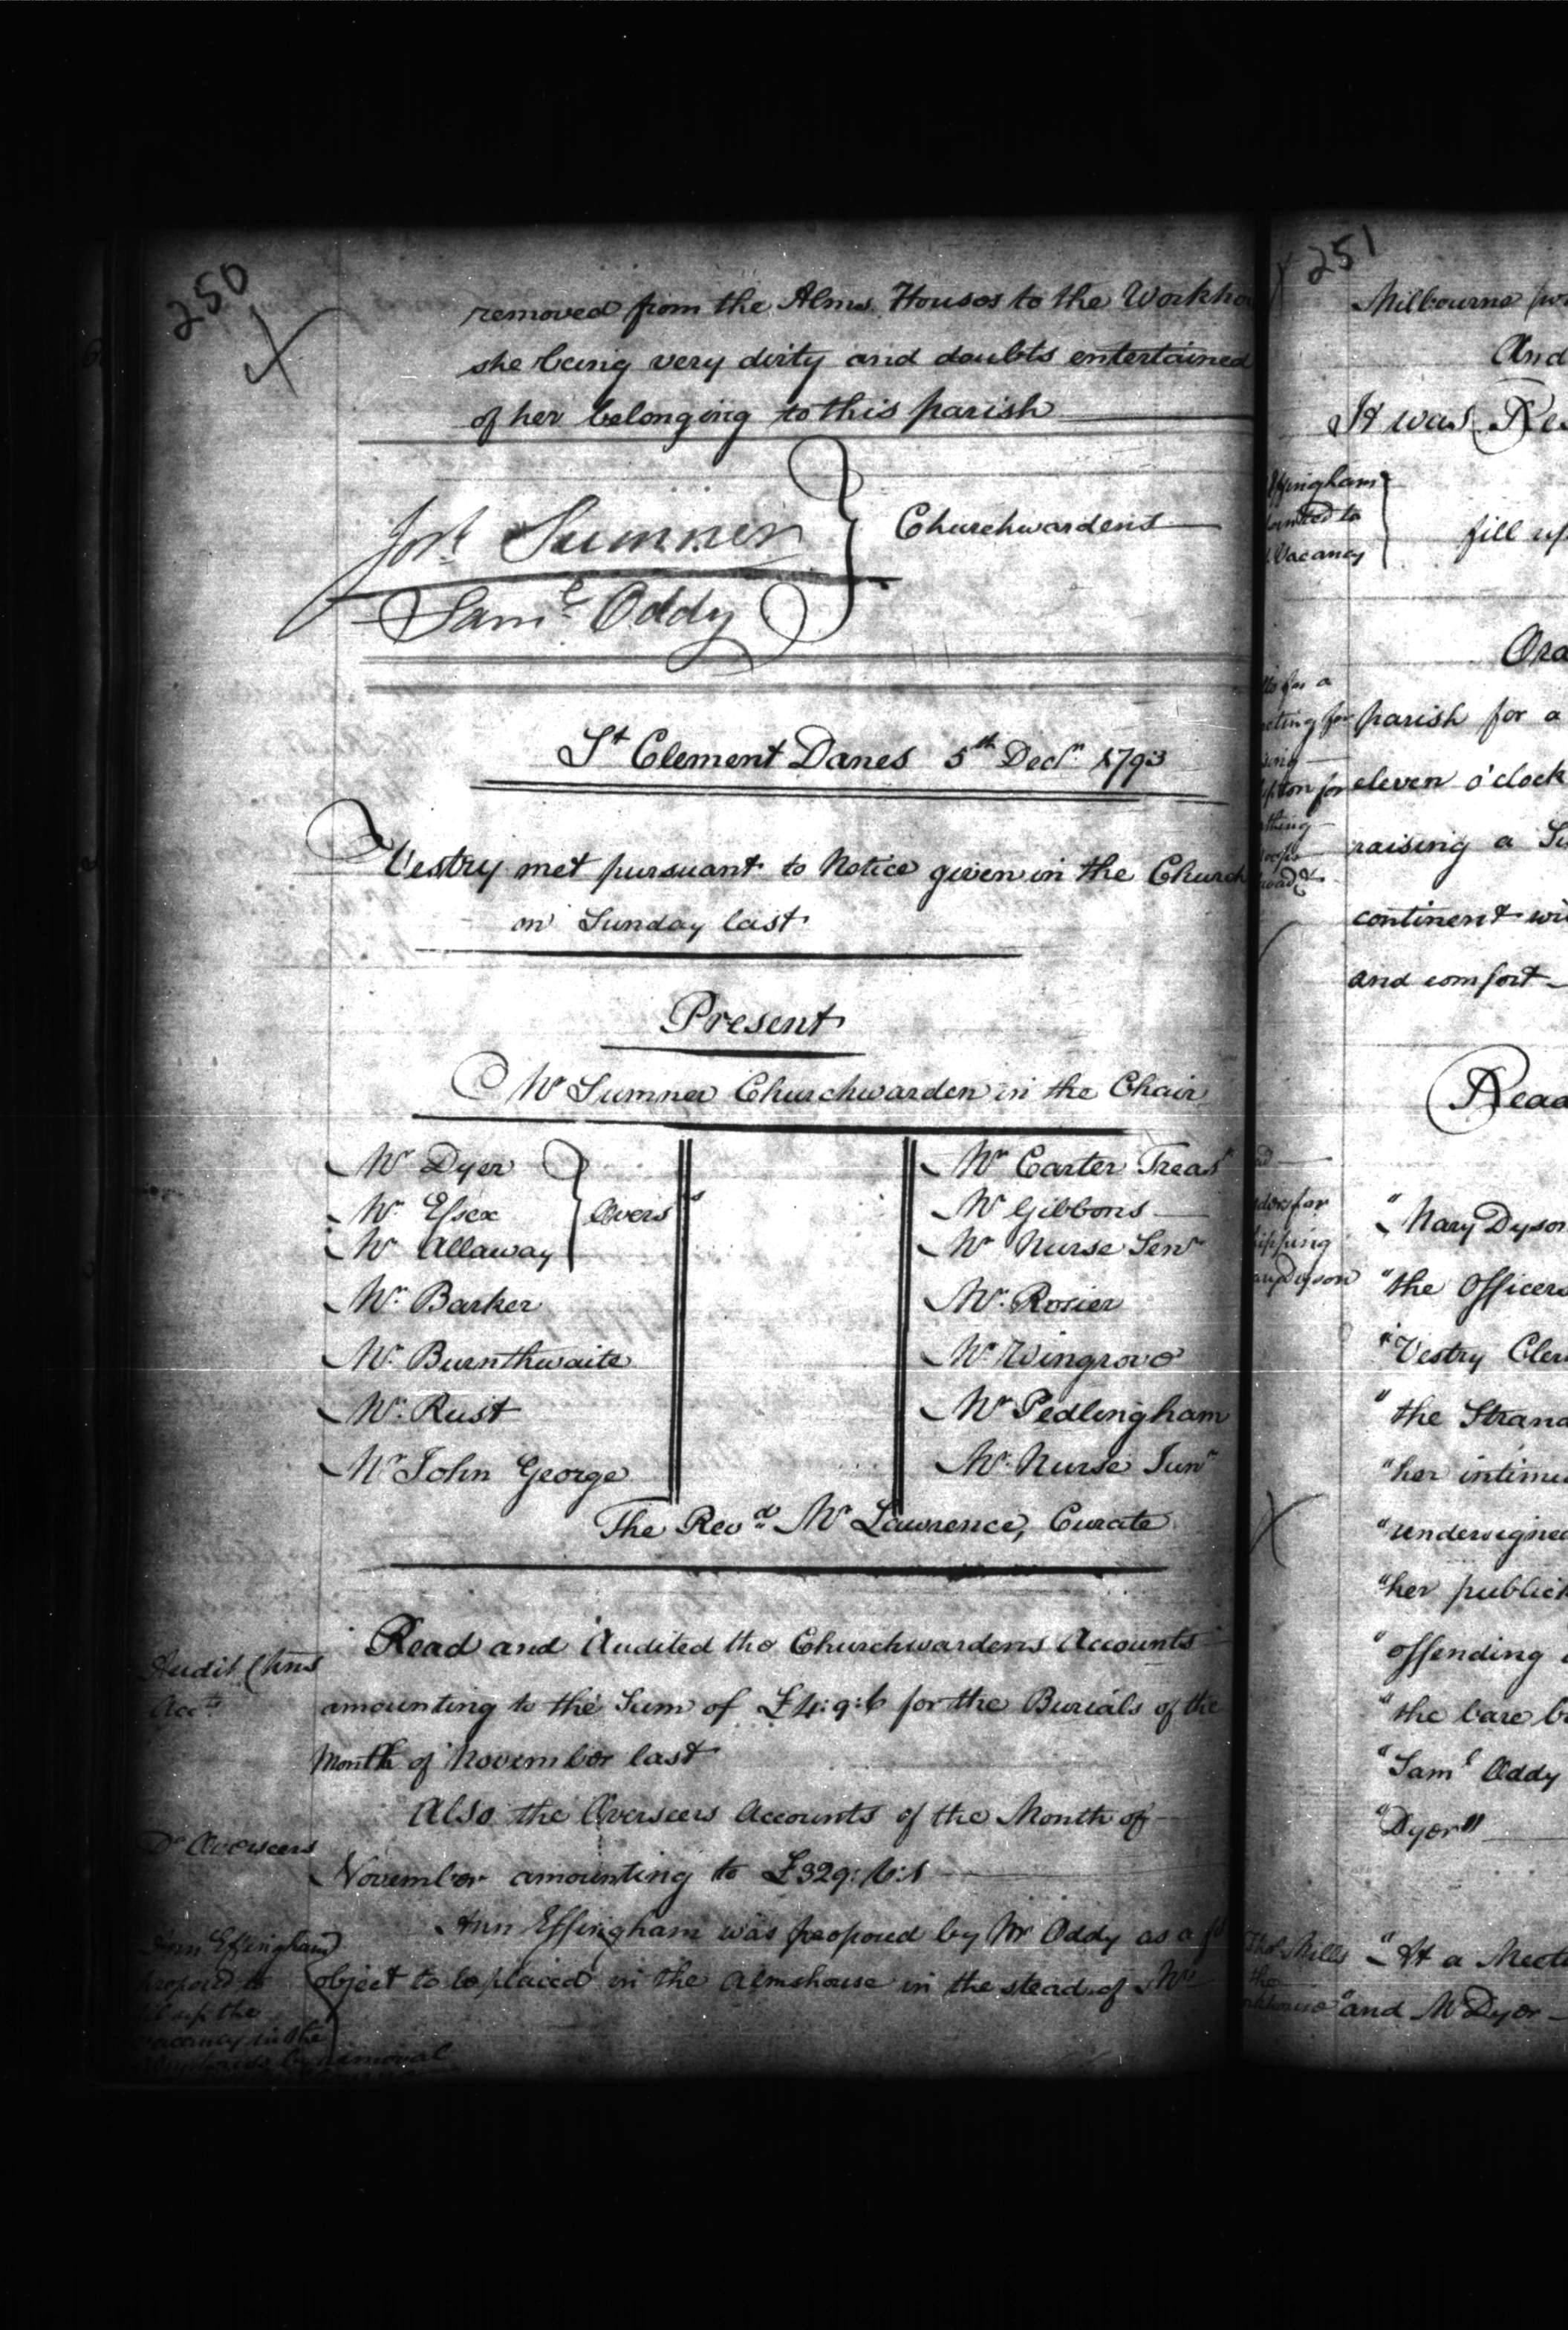 250
removed from the Alms Houses to the Workho
she being very dirty and doubts entertained
of her belonging to this parish
Josh Sumner
Churchwardens
Saml. Oddy
St Clement Danes 5th Decr. 1793
Vestry met pursuant to Notice given in the Church
on Sunday last
Present
Mr Sumner Churchwarden in the Chair
Mr Dyer
Mr Essex
Mr Allaway
Overs
Mr Barker
Mr Burnthwaite
Mr Rust
Mr John George
Mr Carter Treasr
Mr Gibbons
Mr Nurse Senr
Mr Rosier
Mr Wingrove
Mr Pedlingham
Mr Nurse Junr
The Revd. Mr Lawrence, Curate
Audit Chns
Accts
Read and Audited the Churchwardens Accounts
amounting to the Sum of £4:9:6 for the Burials of the
Month of November last
Do Overseers
Also the Overseers Accounts of the Month of
November amounting to £329:6:1
Ann Effingham
proposed to
fill up the
vacancy in the
Almshouse by removal
Ann Effingham was proposed by Mr Oddy as a
object to be placed in the Almshouse in the stead of Mrs
251
Milbourne
And
It was Res
ffingham
to
Vacancy
fill up
Ord
for a
parish for a
eleven o'clock
raising a Su
continent wi
and comfort
Read
"Mary Dyson
"the Officers
"Vestry Cler
"the Strand
"her intim
"undersigned
"her publick
"offending
"the care
"Saml Oddy
"Dyer"
Thos Mills
the
"At a Meeti
"and Mr Dyer